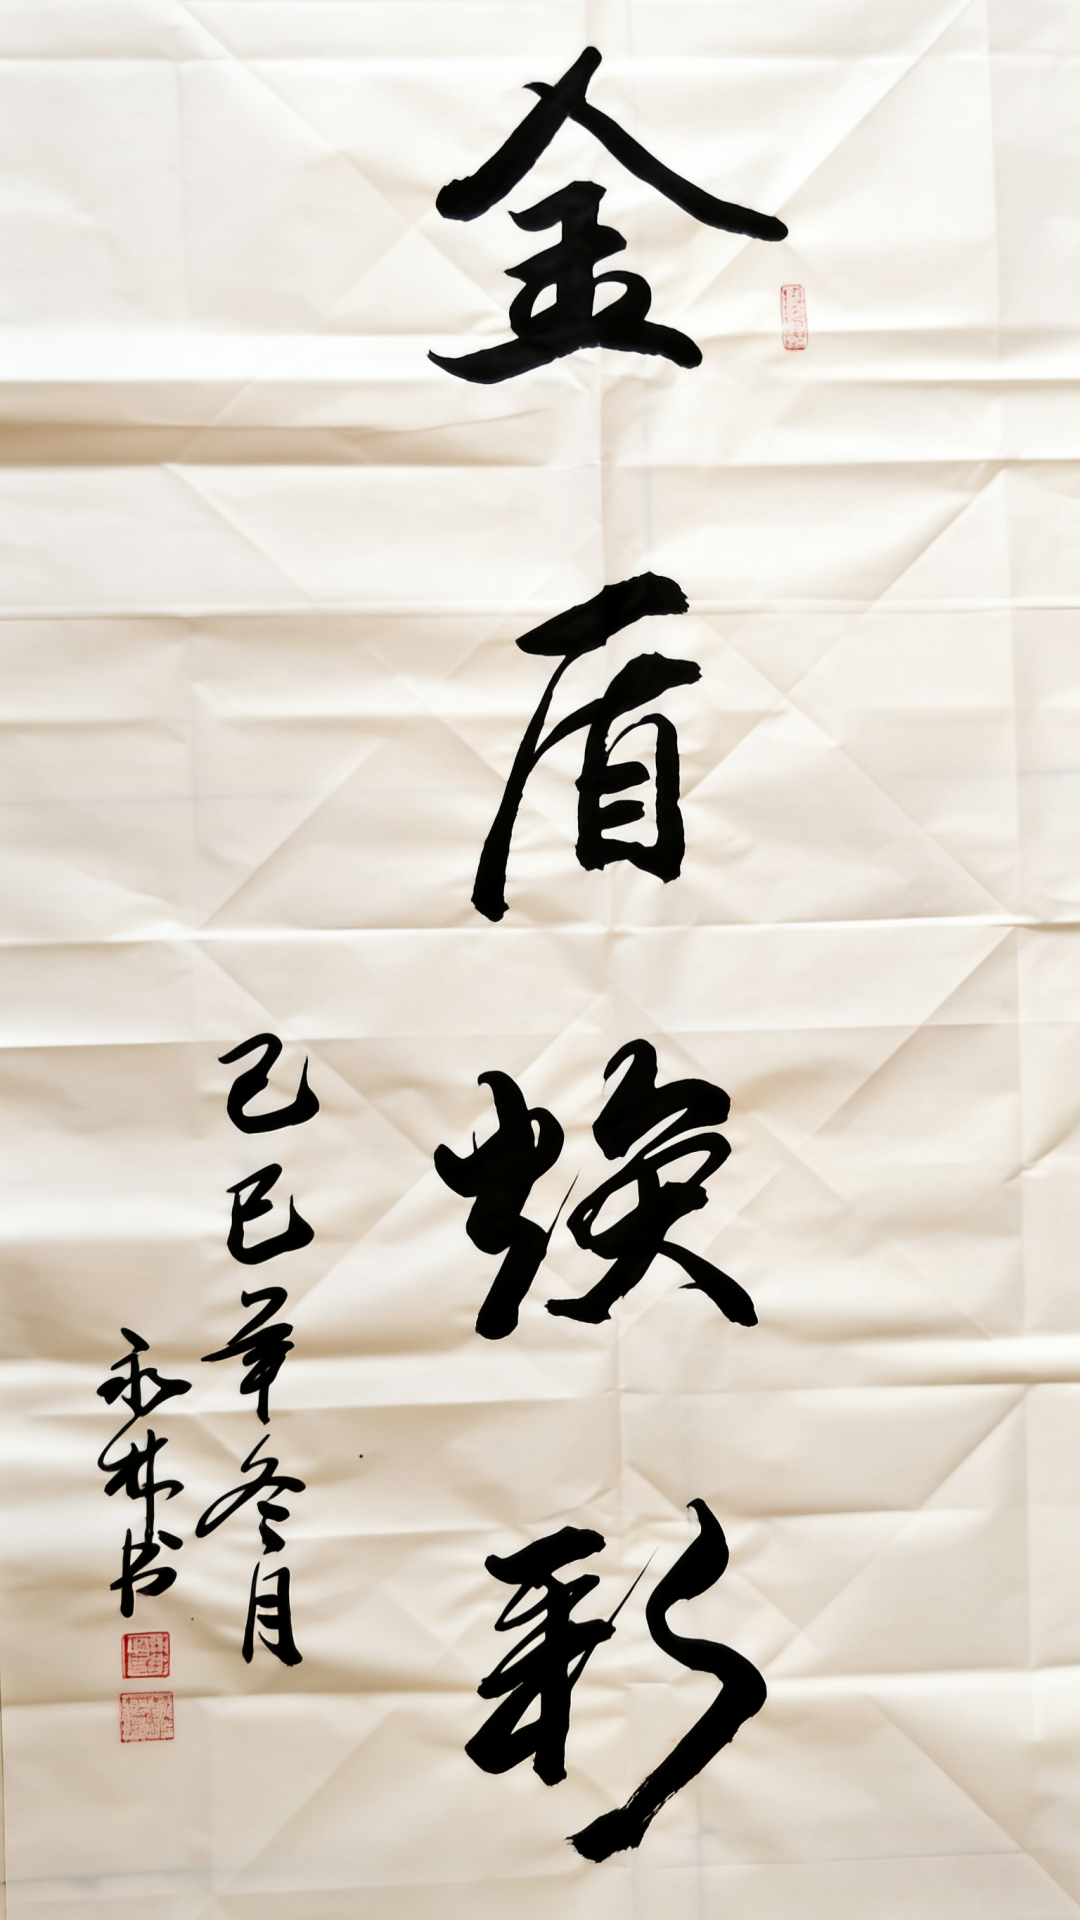 金盾焕彩
己巳年冬月
永林书